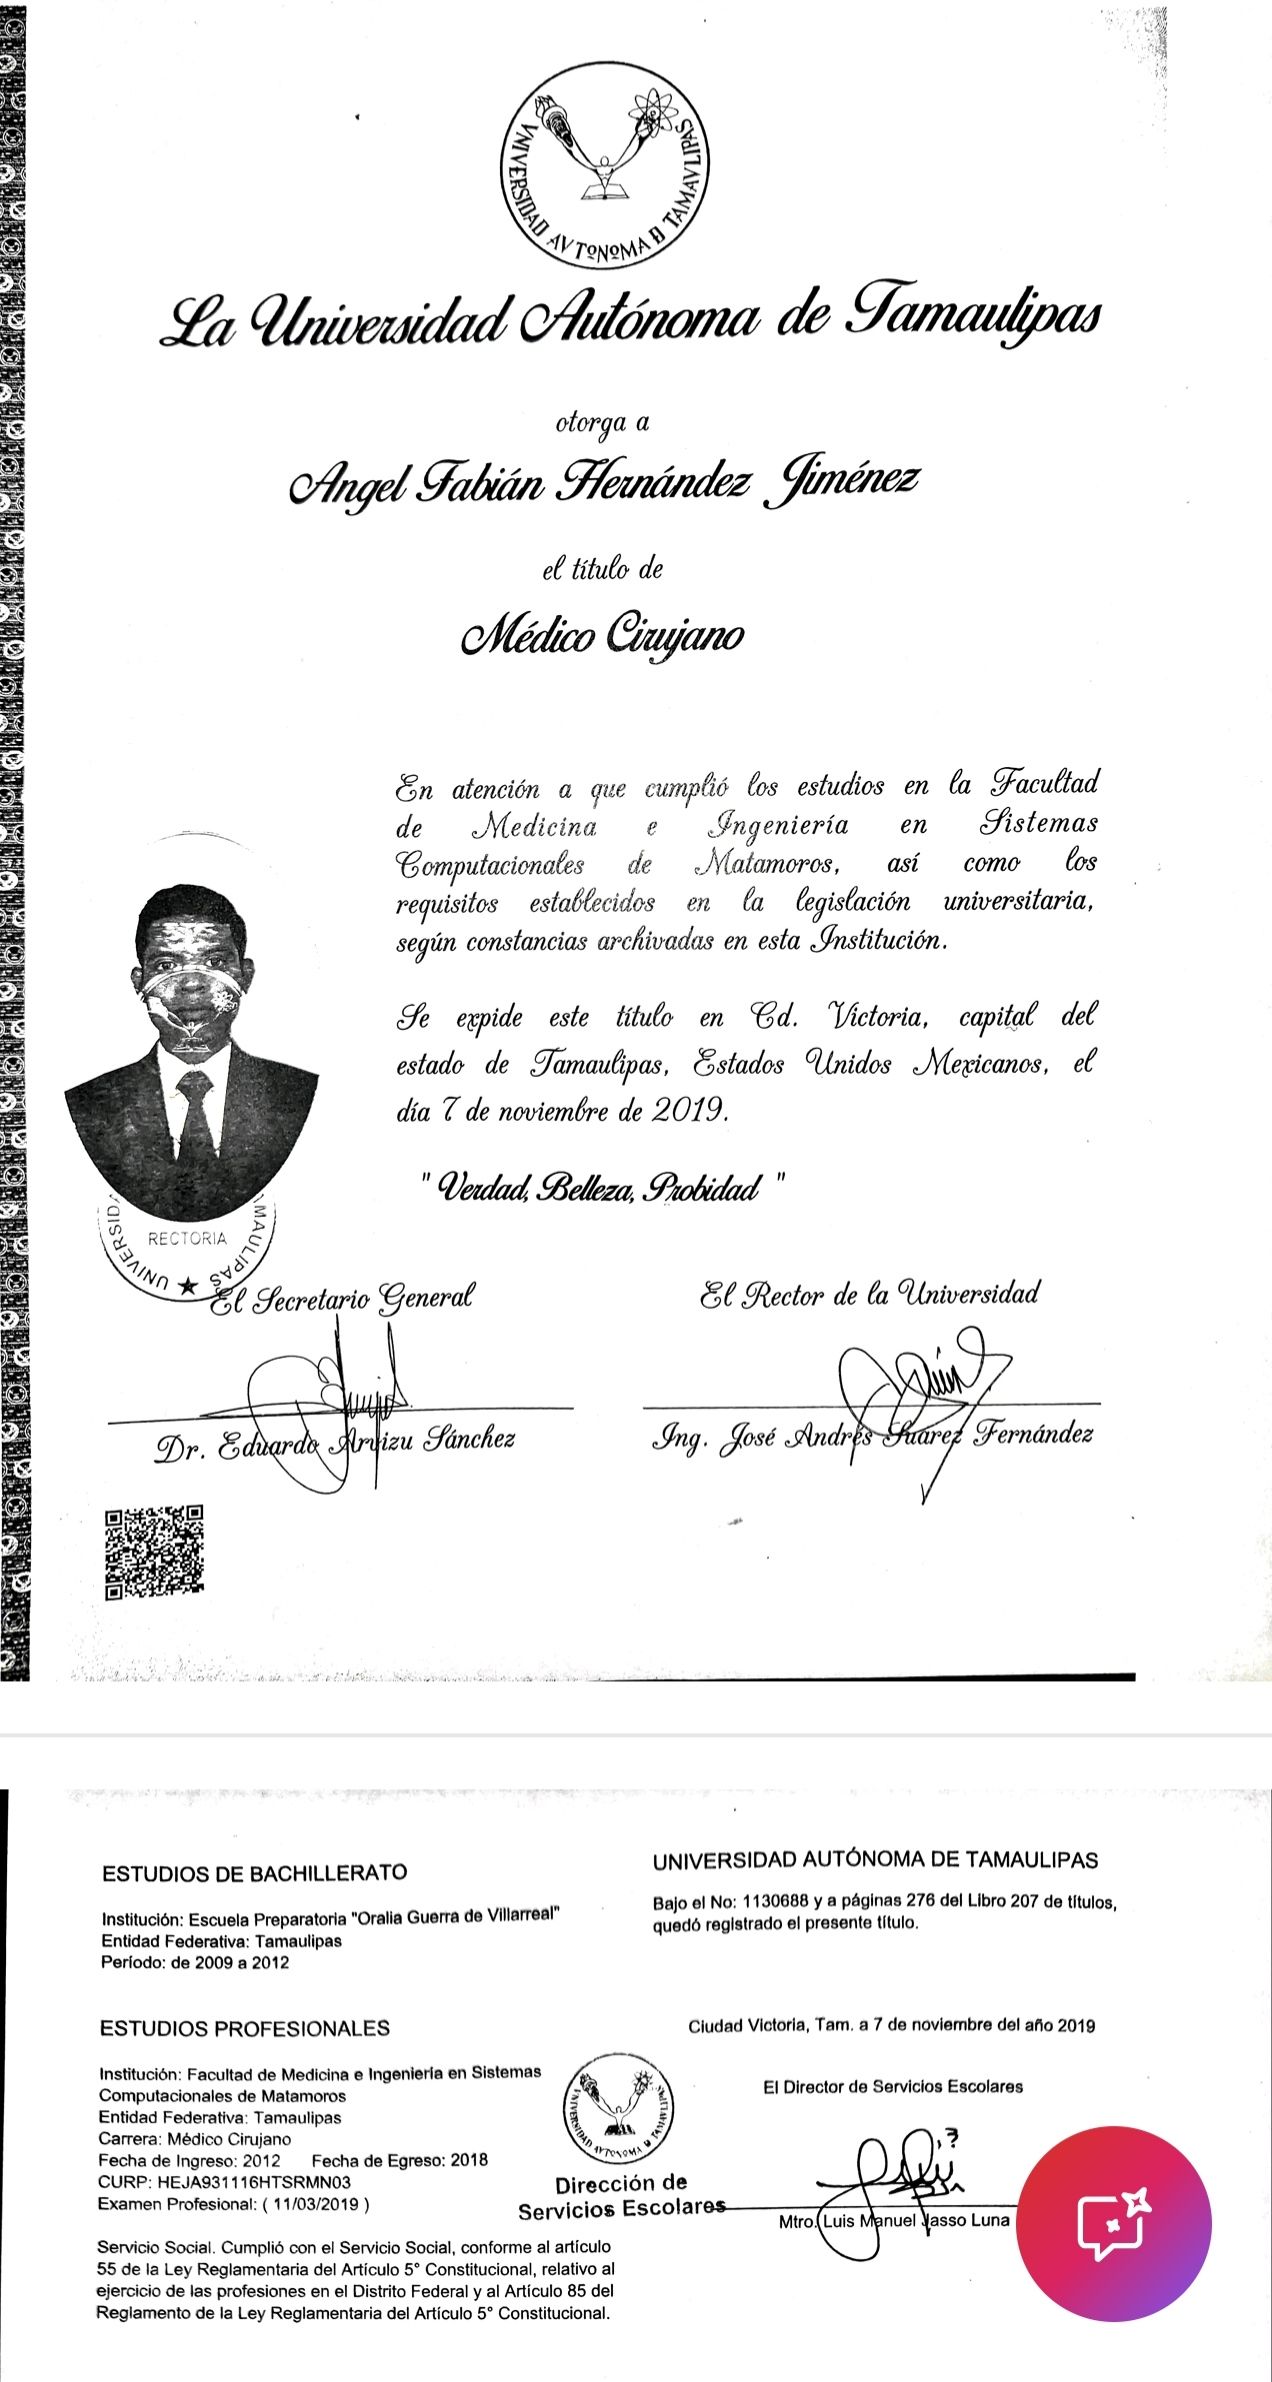 VNIVERSIDAD AVTONOMA DE TAMAVLIPAS
La Universidad Autónoma de Tamaulipas
otorga a
Angel Fabián Hernández Jiménez
el título de
Médico Cirujano
En atención a que cumplió los estudios en la Facultad
de Medicina e Ingeniería en Sistemas
Computacionales de Matamoros, así como los
requisitos establecidos en la legislación universitaria,
según constancias archivadas en esta Institución.
Se expide este título en Cd. Victoria, capital del
estado de Tamaulipas, Estados Unidos Mexicanos, el
día 7 de noviembre de 2019.
" Verdad, Belleza, Probidad "
RECTORIA
El Secretario General
Dr. Eduardo Arvizu Sánchez
El Rector de la Universidad
Ing. José Andrés Suárez Fernández
ESTUDIOS DE BACHILLERATO
Institución: Escuela Preparatoria "Oralia Guerra de Villarreal"
Entidad Federativa: Tamaulipas
Período: de 2009 a 2012
ESTUDIOS PROFESIONALES
Institución: Facultad de Medicina e Ingeniería en Sistemas
Computacionales de Matamoros
Entidad Federativa: Tamaulipas
Carrera: Médico Cirujano
Fecha de Ingreso: 2012 Fecha de Egreso: 2018
CURP: HEJA931116HTSRMN03
Examen Profesional: ( 11/03/2019 )
Servicio Social. Cumplió con el Servicio Social, conforme al artículo
55 de la Ley Reglamentaria del Artículo 5° Constitucional, relativo al
ejercicio de las profesiones en el Distrito Federal y al Artículo 85 del
Reglamento de la Ley Reglamentaria del Artículo 5° Constitucional.
UNIVERSIDAD AUTÓNOMA DE TAMAULIPAS
Bajo el No: 1130688 y a páginas 276 del Libro 207 de títulos,
quedó registrado el presente título.
Ciudad Victoria, Tam. a 7 de noviembre del año 2019
VNIVERSIDAD AVTONOMA DE TAMAVLIPAS
Dirección de
Servicios Escolares
El Director de Servicios Escolares
Mtro. Luis Manuel Jasso Luna